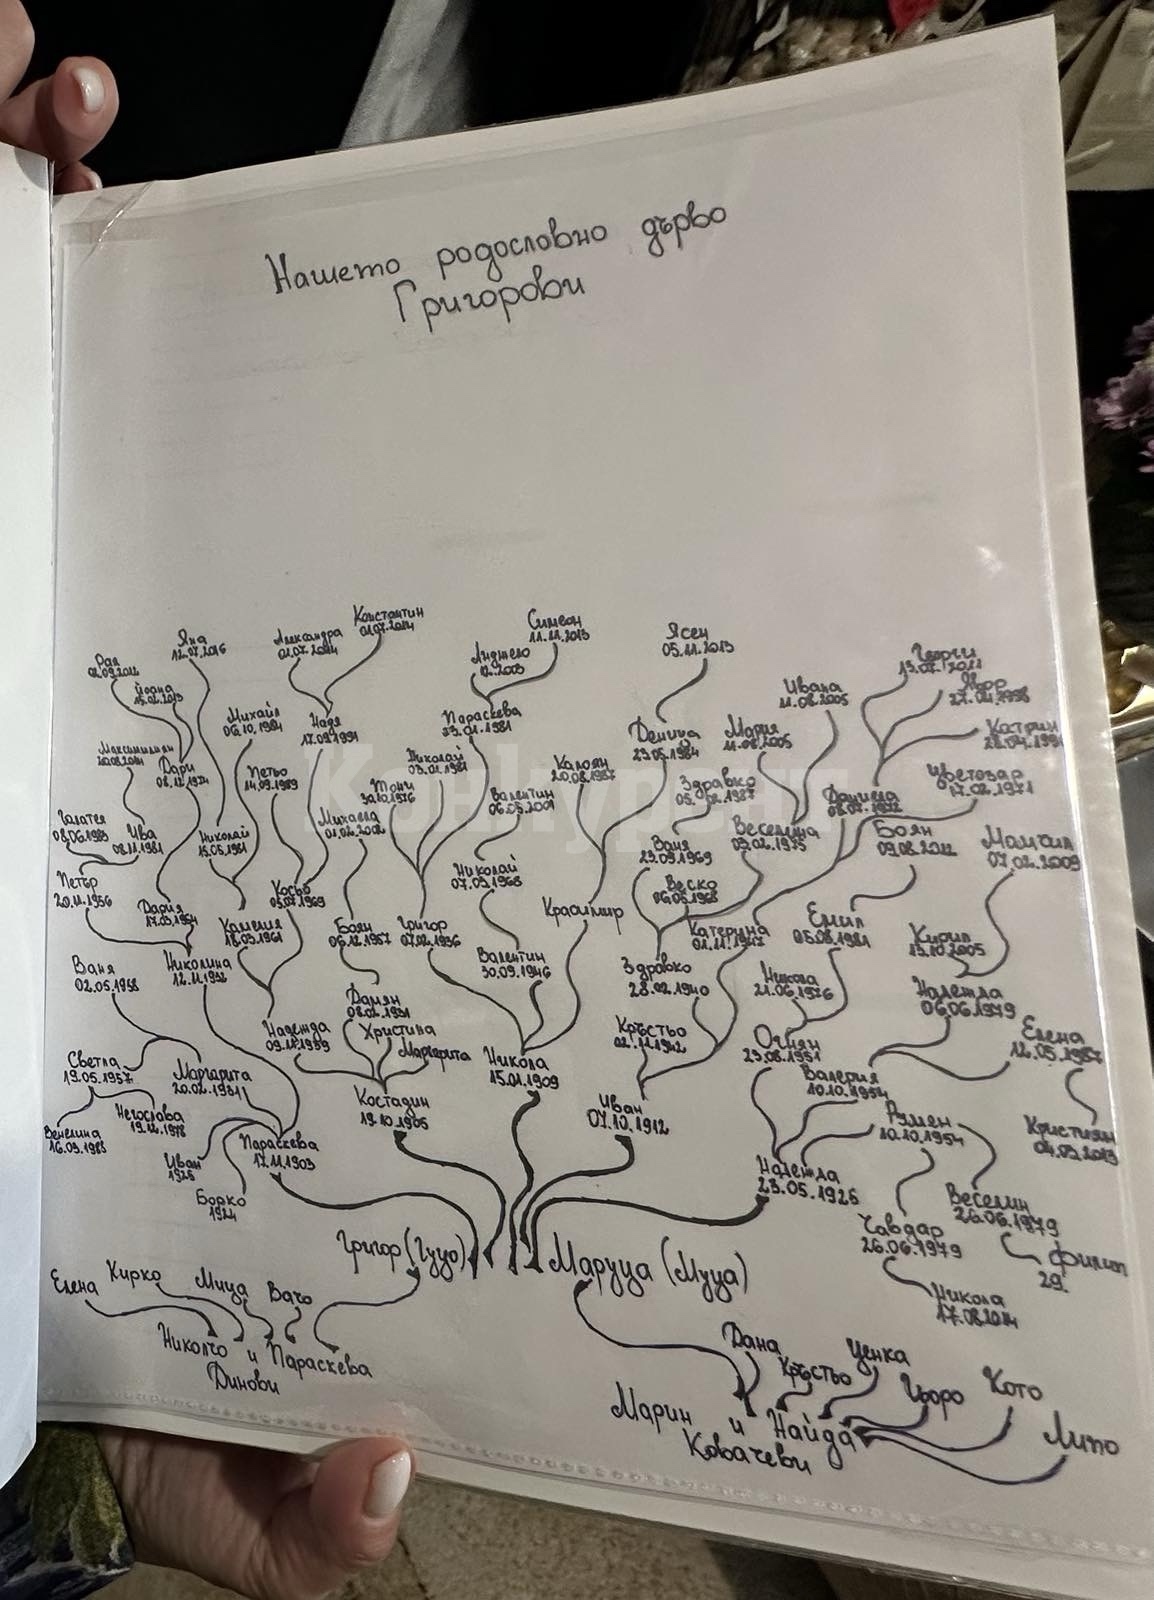 Нашето родословно дърво
Григорови
Константин
01.07.2014
Симеон
11.11.2013
Ясен
05.11.2013
Яна
12.07.2016
Александра
01.07.2014
Анджело
12.2003
Георги
13.07.2011
Рая
02.09.2012
Йоана
15.02.2013
Ивана
11.08.2005
Явор
Михаил
06.10.1984
Надя
17.09.1991
Параскева
23.01.1981
Деница
23.05.1984
Мария
11.08.2005
Катрин
28.04.1991
Максимилиан
20.08.2014
Дари
08.12.1974
Петьо
14.09.1989
Тони
30.10.1976
Николай
03.01.1981
Калоян
20.08.1987
Здравко
05.02.1987
Цветозар
17.02.1971
Михаела
01.02.2002
Валентин
06.05.2001
Даниела
08.07.1972
Галатея
08.06.1983
Ива
08.11.1981
Николай
15.05.1981
Ваня
23.09.1969
Веселина
03.02.1975
Боян
09.08.2012
Момчил
07.02.2009
Петър
20.11.1956
Дария
17.03.1954
Камелия
18.03.1961
Косьо
05.07.1969
Боян
06.12.1957
Григор
07.02.1936
Николай
07.03.1968
Красимир
Веско
06.05.1968
Катерина
01.11.1947
Емил
05.08.1981
Кирил
13.10.2005
Ваня
02.05.1958
Николина
12.11.1932
Дамян
08.02.1931
Валентин
30.09.1946
Здравко
28.02.1940
Никола
21.06.1976
Надежда
06.06.1979
Светла
19.05.1957
Маргарита
20.02.1931
Надежда
09.11.1939
Христина
Маргарита
Никола
15.01.1909
Кръстьо
02.11.1942
Огнян
23.08.1951
Елена
12.05.1987
Валерия
10.10.1954
Венелина
16.03.1983
Негослава
19.12.1978
Костадин
19.10.1905
Иван
07.10.1912
Румен
10.10.1954
Кристиян
04.03.2013
Иван
1926
Параскева
17.11.1903
Надежда
23.05.1926
Борко
1924
Веселин
26.06.1979
Чавдар
26.06.1979
Филип
29.
Григор (Гуцо)
Маруца (Муца)
Никола
17.08.2014
Елена
Кирко
Мица
Вачо
Николчо и Параскева
Динови
Дана
Кръстьо
Ценка
Гьоро
Кото
Липо
Марин и Найда
Ковачеви